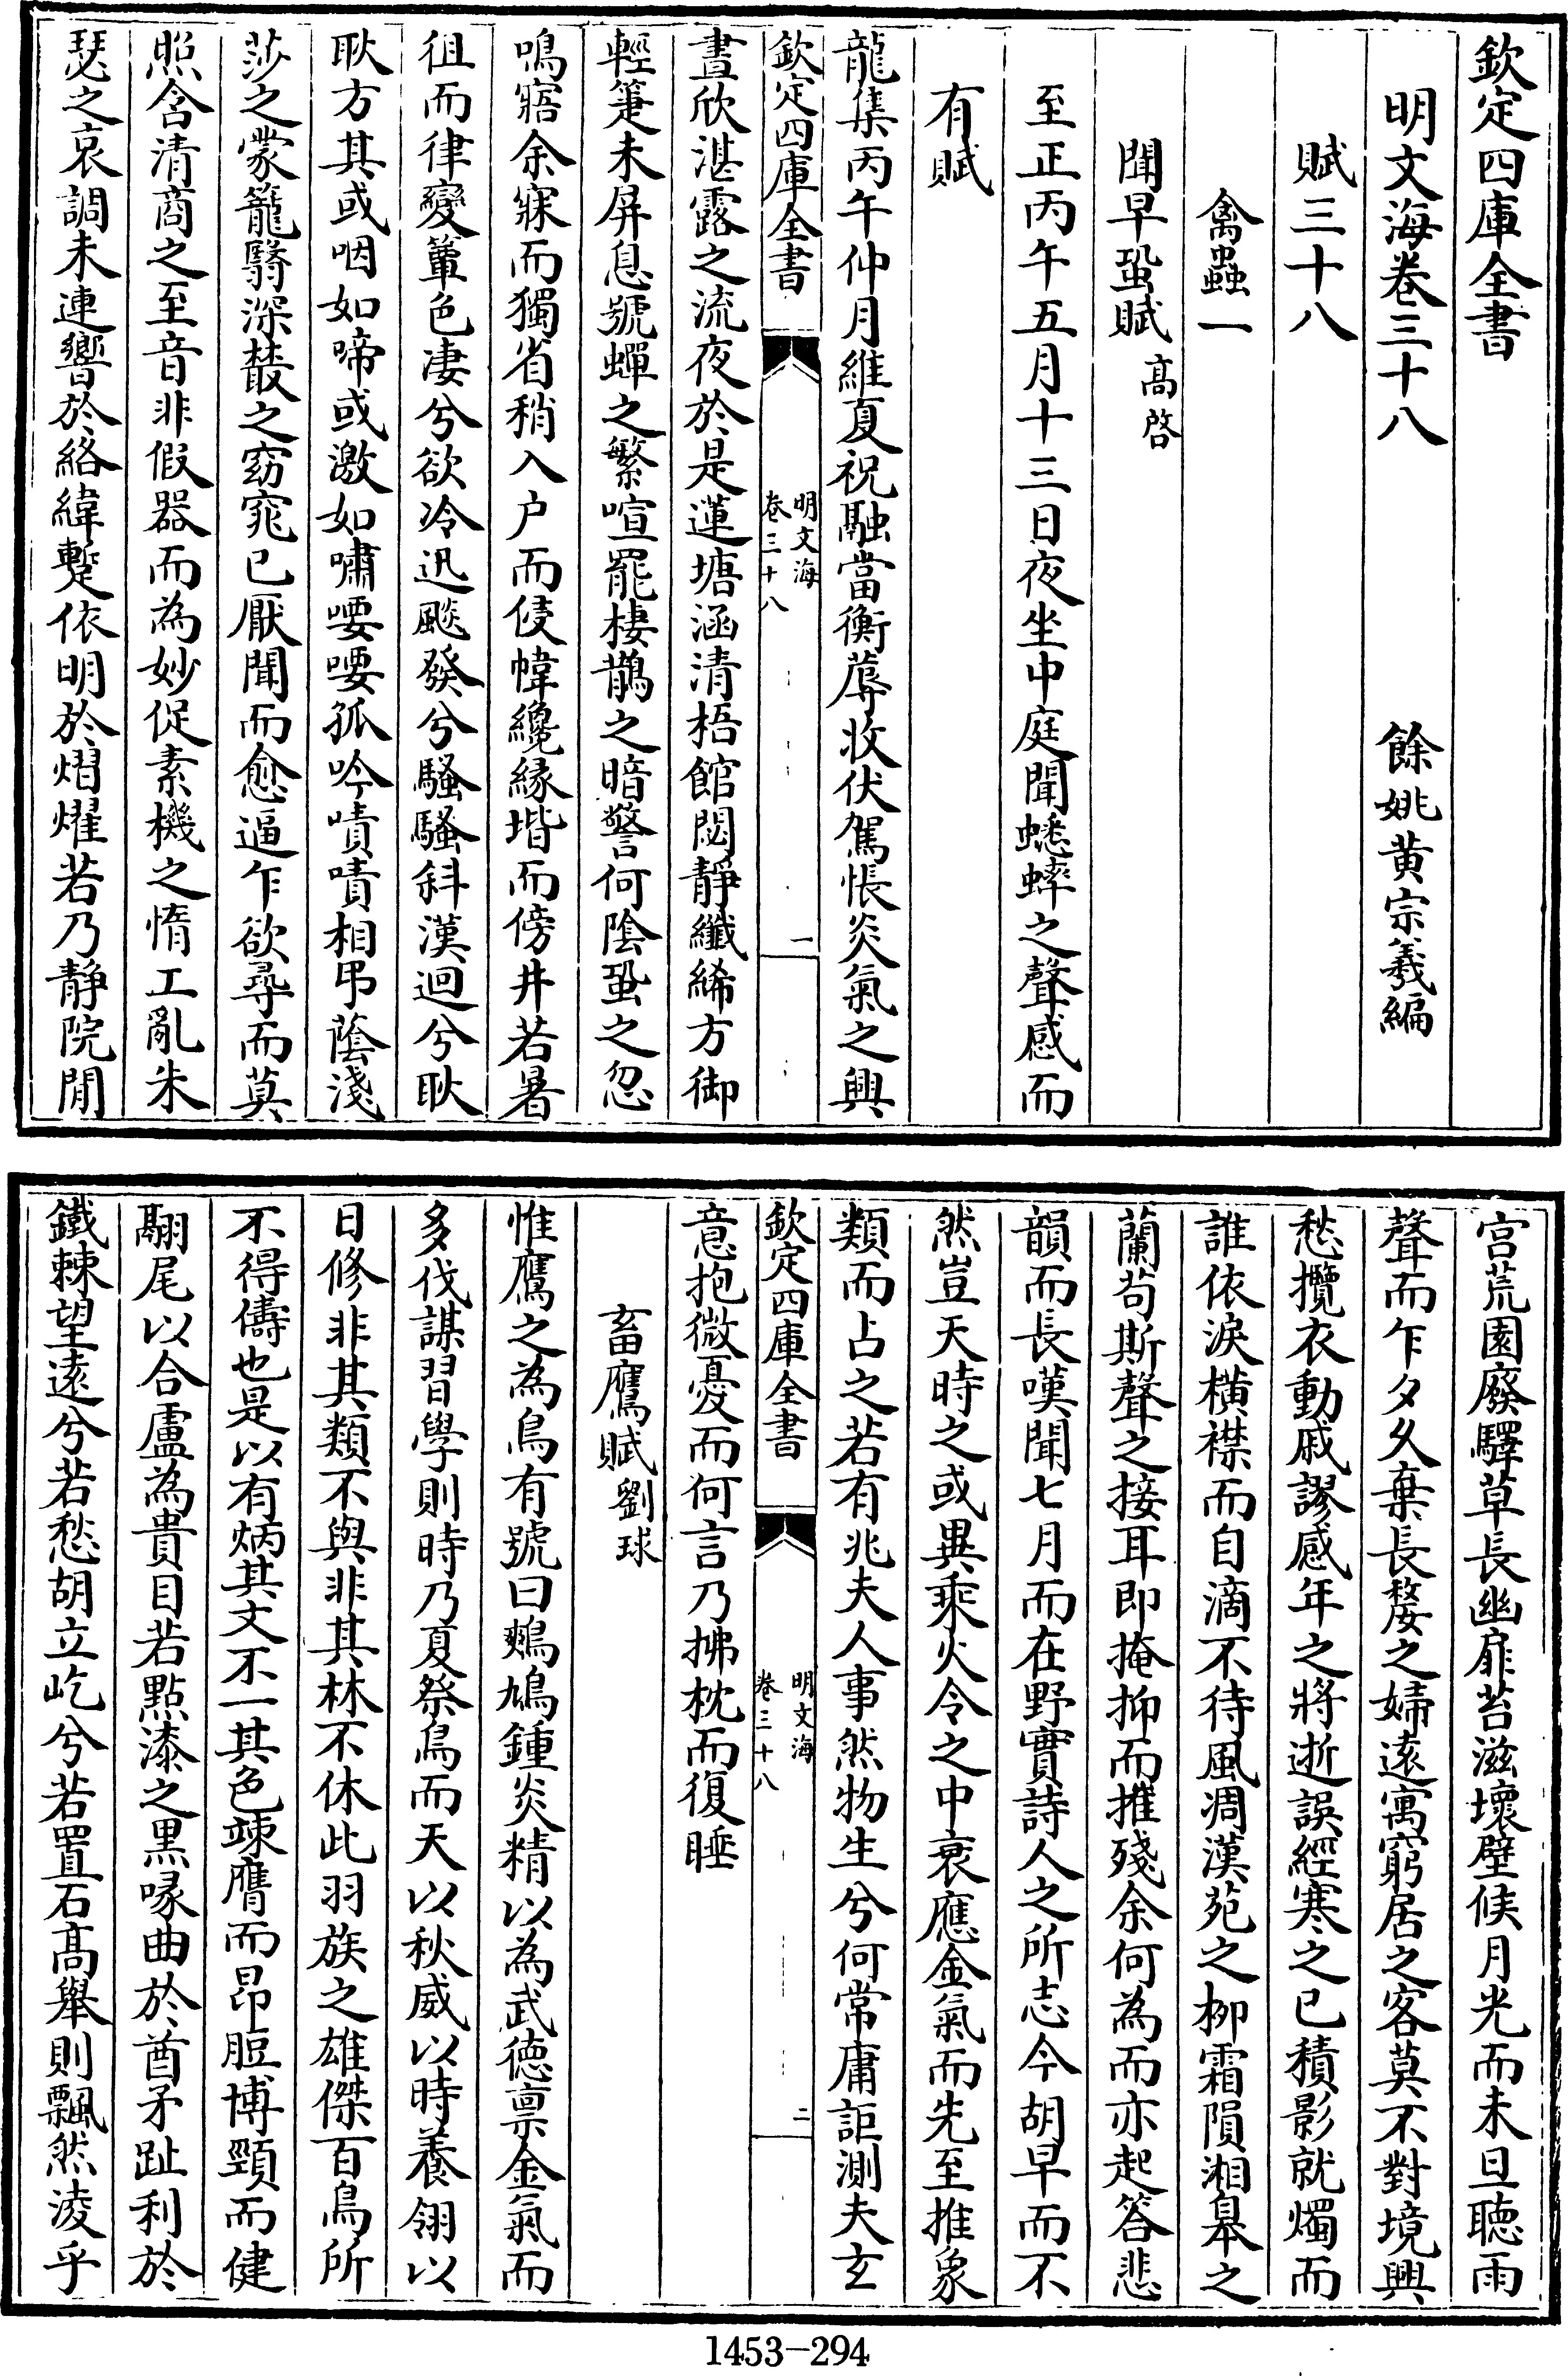 欽定四庫全書
明文海卷三十八　餘姚黃宗羲編
賦三十八
禽蟲一
聞早蛩賦　高啓
至正丙午五月十三日夜坐中庭聞蟋蟀之聲感而
有賦
龍集丙午仲月維夏祝融當衡蓐收伏駕悵炎氣之興
欽定四庫全書
明文海
卷三十八
一
晝欣湛露之流夜於是蓮塘涵清梧館閟靜纖絺方御
輕箑未屏息號蟬之繁喧罷棲鵲之暗警何陰蛩之忽
鳴寤余寐而獨省稍入户而侵幃纔緣堦而傍井若暑
徂而律變簟色凄兮欲冷迅飈發兮騷騷斜漢迴兮耿
耿方其或咽如啼或激如嘯喓喓孤吟嘖嘖相弔蔭淺
莎之蒙籠翳深藂之窈窕已厭聞而愈逼乍欲尋而莫
照含清商之至音非假器而為妙促素機之惰工亂朱
瑟之哀調未連響於絡緯蹔依明於熠燿若乃靜院閒
宫荒園廢驛草長幽扉苔滋壞壁候月光而未旦聽雨
聲而乍夕久棄長嫠之婦遠寓窮居之客莫不對境興
愁攬衣動戚謬感年之將逝誤經寒之已積影就燭而
誰依淚橫襟而自滴不待風凋漢苑之柳霜隕湘臯之
蘭苟斯聲之接耳即掩抑而摧殘余何為而亦起答悲
韻而長嘆聞七月而在野實詩人之所志今胡早而不
然豈天時之或異乘火令之中衰應金氣而先至推象
類而占之若有兆夫人事然物生兮何常庸詎測夫玄
欽定四庫全書
明文海
卷三十八
二
意抱微憂而何言乃拂枕而復睡
畜鷹賦　劉球
惟鷹之為鳥有號曰鷞鳩鍾炎精以為武德禀金氣而
多伐謀習學則時乃夏祭鳥而天以秋威以時養翎以
日修非其類不與非其林不休此羽族之雄傑百鳥所
不得儔也是以有炳其文不一其色竦膺而昂脰博頸而健
翮尾以合盧為貴目若點漆之黑喙曲於酋矛趾利於
鐵棘望遠兮若愁胡立屹兮若置石高舉則飄然淩乎
1453-294